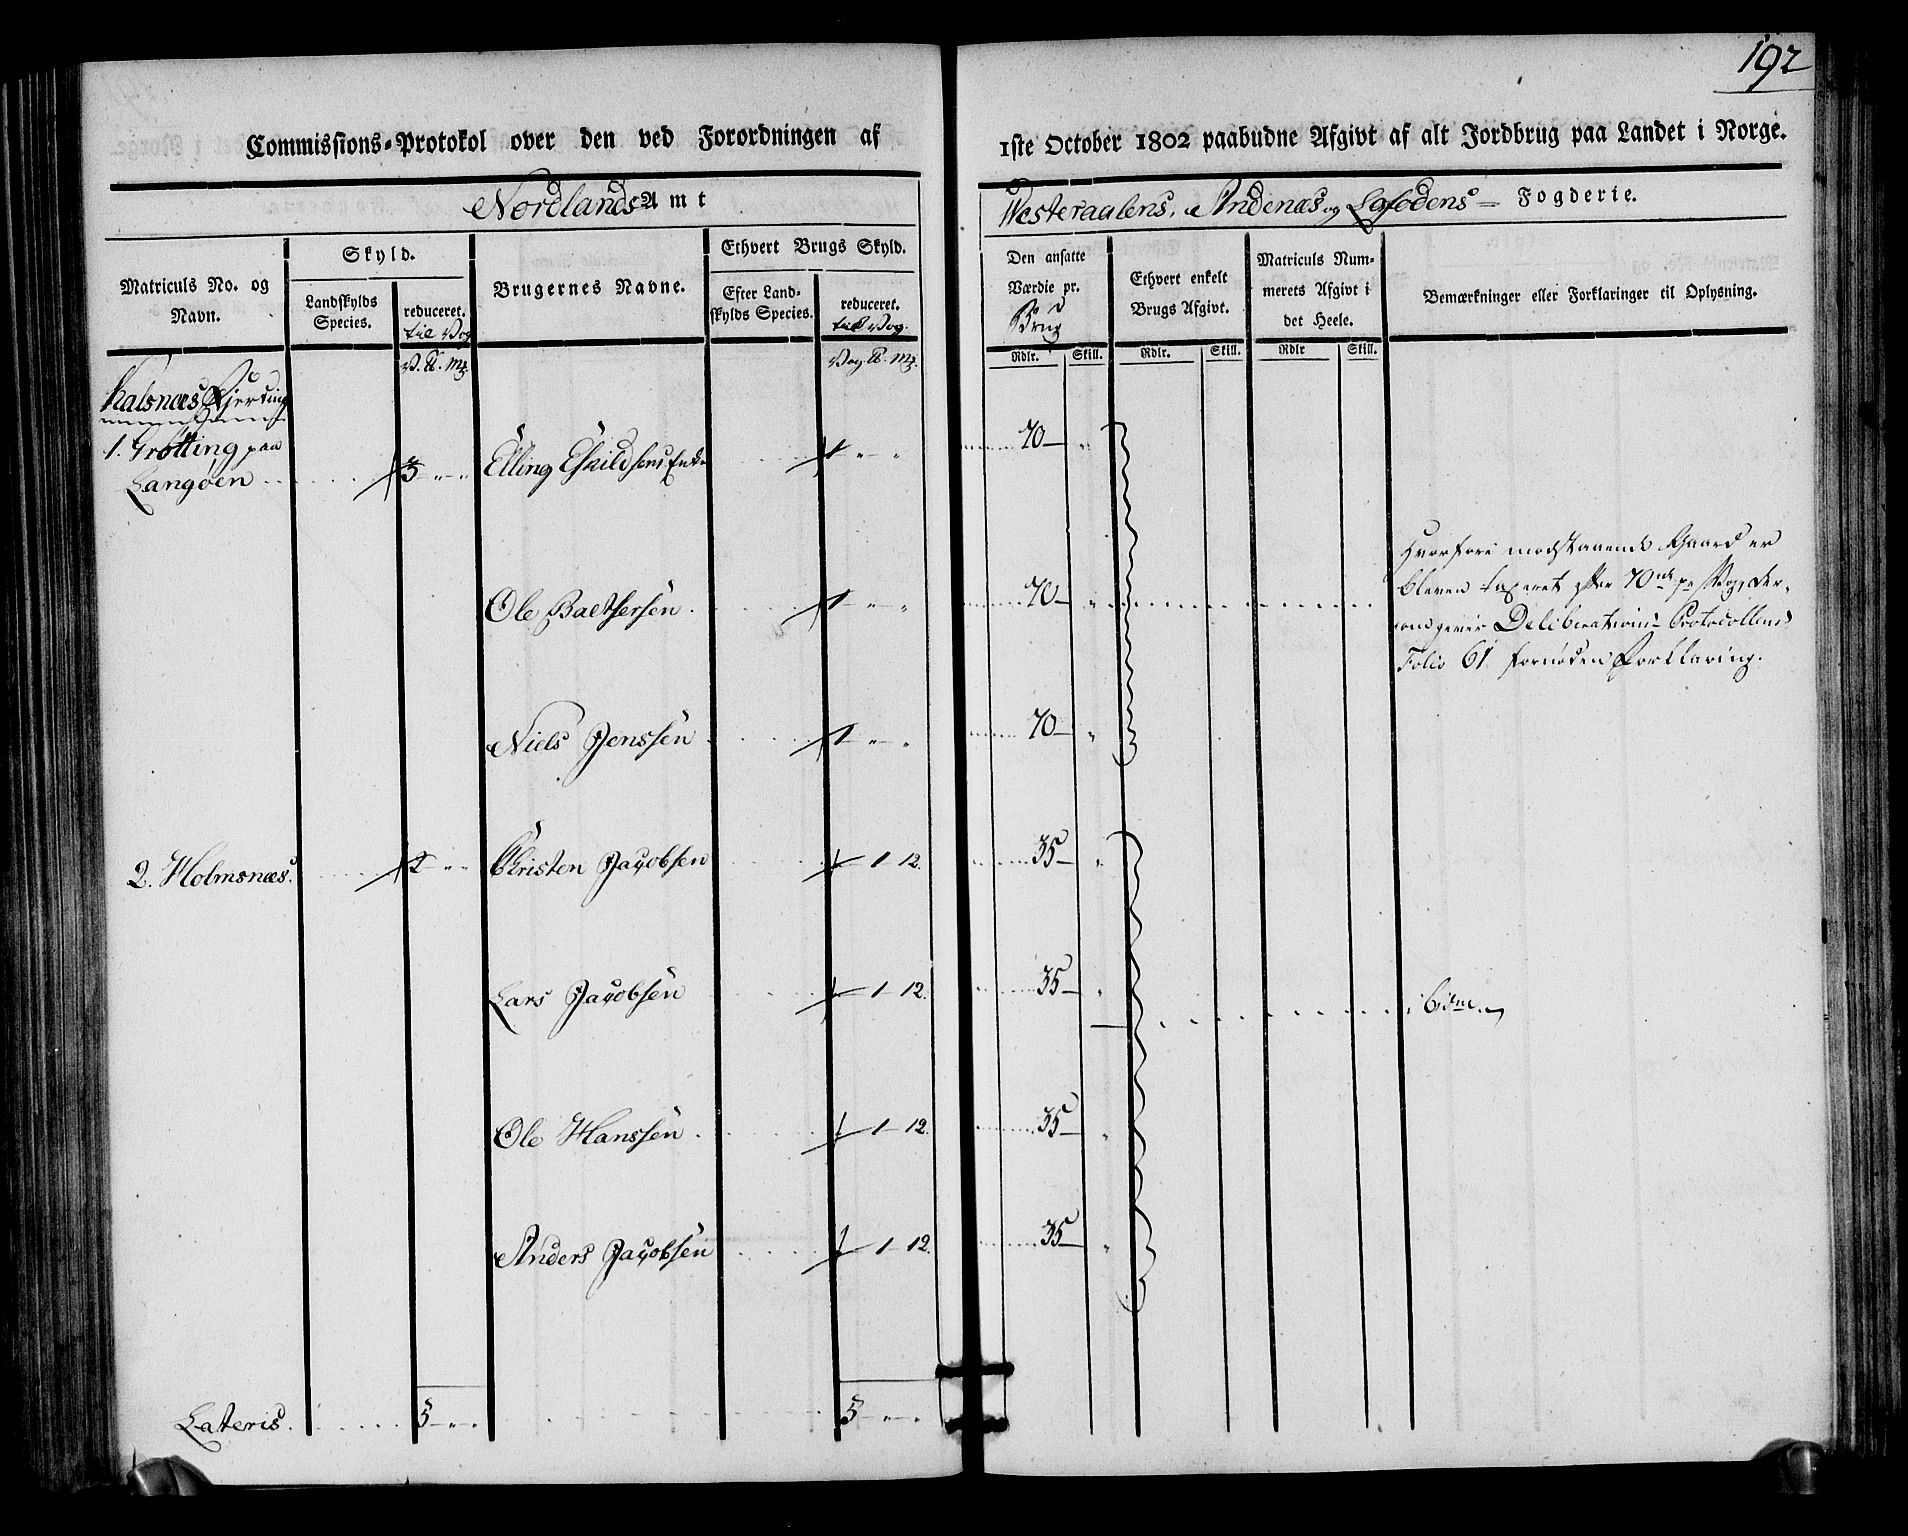 192
Commissions-Protokol over den ved Forordningen af 1ste October 1802 paabudne Afgivt af alt Jordbrug paa Landet i Norge.
Nordlands Amt
Westeraalens, Andenæs og Lofodens Fogderie.
Matriculs No. og Navn.
Skyld.
Landskylds Species.
reduceret.
til Vog
Brugernes Navne.
Ethvert Brugs Skyld.
Efter Landskylds Species.
reduceret.
til Vog.
Den ansatte Værdie pr.
Brug
Ethvert enkelt Brugs Afgivt.
Matriculs Nummerets Afgivt i det Heele.
Bemærkninger eller Forklaringer til Oplysning.
Rdlr. Skill. Rdlr. Skill. Rdlr Skill.
Kalsnæs Fjerding
1. Grøtting paa
Langøen 3 " "
Elling Eskildsens Enke 1 " " 70 "
Ole Baltsersen 1 " " 70 "
Hvorfore modstaaende Gaard er
bleven taxeret efter 70 pr Vog, der-
om gives Deliberations Protocollens
Folio 61 fornøden Forklaring.
Niels Jenssen 1 " " 70 "
2. Holmsnæs. 2 " " Christen Jacobsen 1 12. 35 "
Lars Jacobsen 1 12. 35 "
Ole Hanssen 1 12. 35 "
Anders Jacobsen 1 12. 35 "
Lateris. 5 " " 5 " "